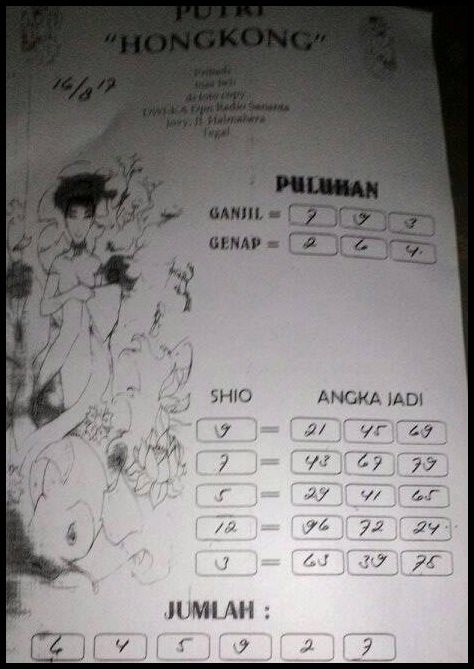 PUTRI
"HONGKONG"
16/8 17
di foto copy
Tegal
PULUHAN
GANJIL = 7 9 3
GENAP = 2 6 4
SHIO ANGKA JADI
9 = 21 45 69
7 = 43 67 79
5 = 29 41 65
12 = 96 72 24
3 = 63 39 75
JUMLAH :
6 4 5 9 2 7